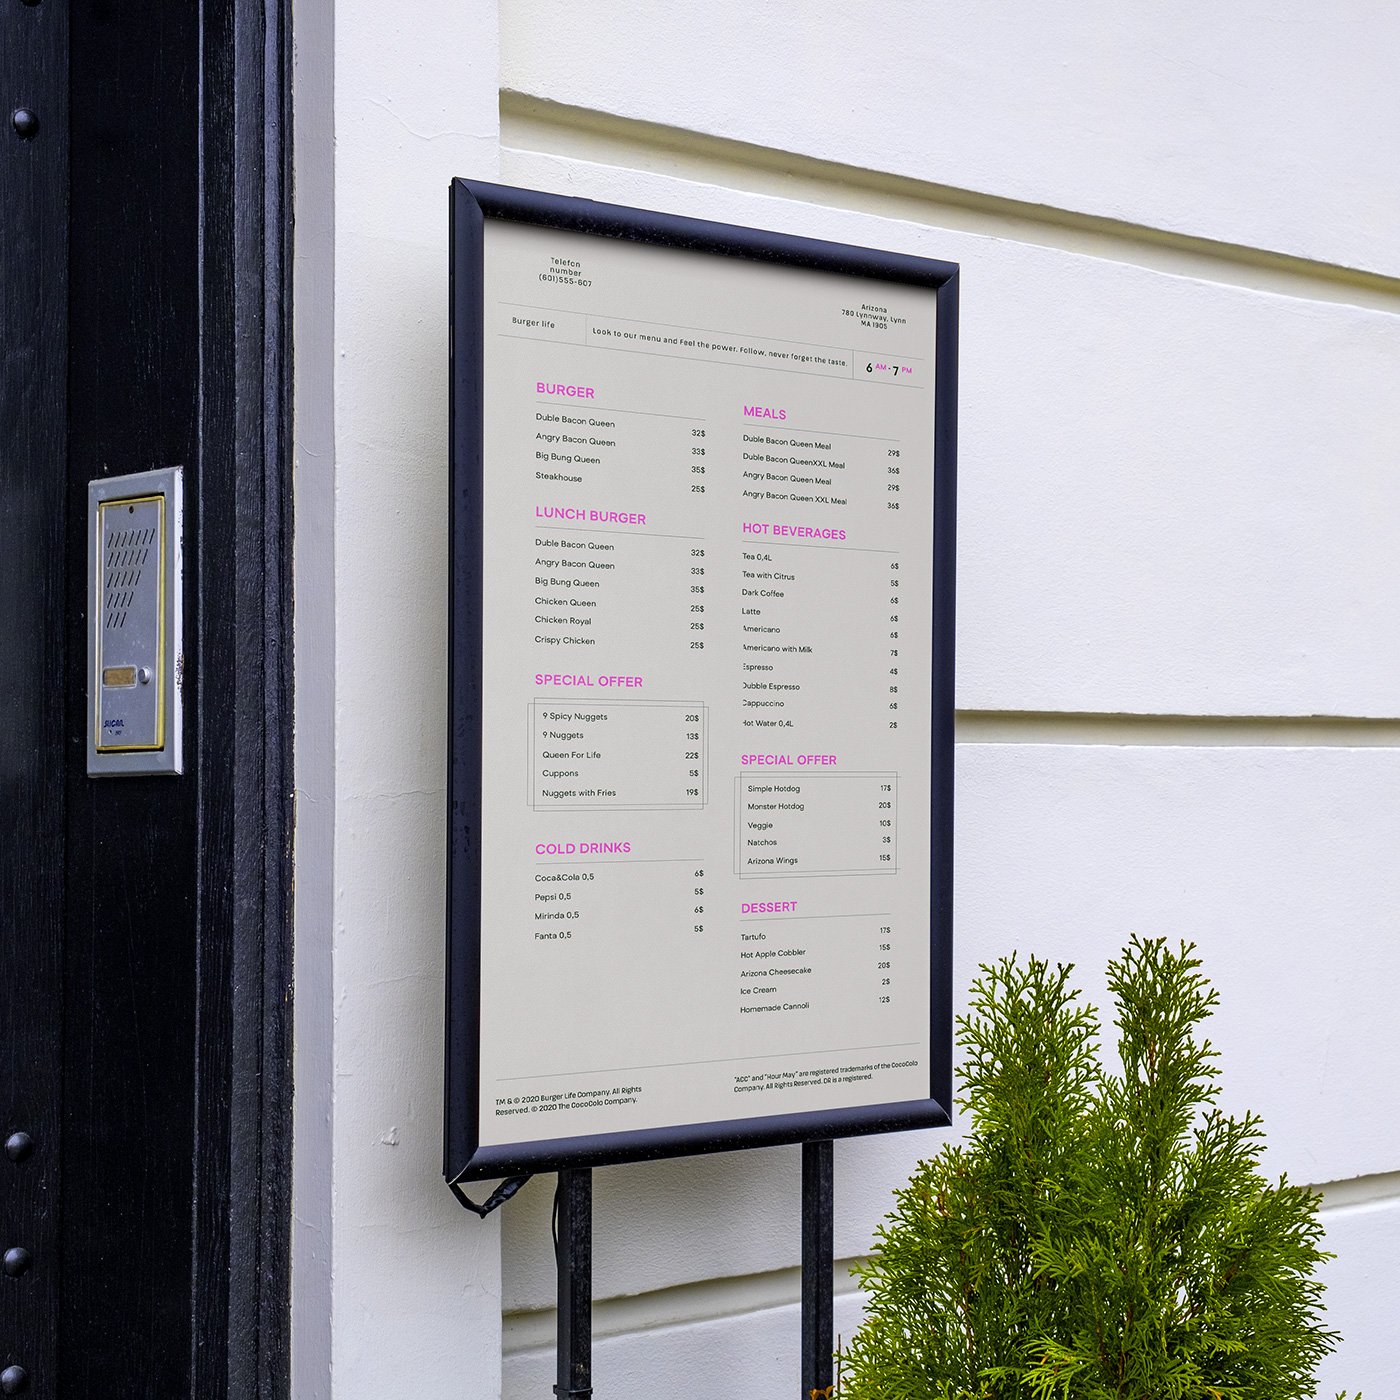 Telefon
number
(601)555-607
Arizona
780 Lynnway, Lynn
MA 1905
Burger life
Look to our menu and Feel the power. Follow, never forget the taste.
6 AM - 7 PM
BURGER
Duble Bacon Queen 32$
Angry Bacon Queen 33$
Big Bung Queen 35$
Steakhouse 25$
LUNCH BURGER
Duble Bacon Queen 32$
Angry Bacon Queen 33$
Big Bung Queen 35$
Chicken Queen 25$
Chicken Royal 25$
Crispy Chicken 25$
SPECIAL OFFER
9 Spicy Nuggets 20$
9 Nuggets 13$
Queen For Life 22$
Cuppons 5$
Nuggets with Fries 19$
COLD DRINKS
Coca&Cola 0,5 6$
Pepsi 0,5 5$
Mirinda 0,5 6$
Fanta 0,5 5$
MEALS
Duble Bacon Queen Meal 29$
Duble Bacon QueenXXL Meal 36$
Angry Bacon Queen Meal 29$
Angry Bacon Queen XXL Meal 36$
HOT BEVERAGES
Tea 0,4L 6$
Tea with Citrus 5$
Dark Coffee 6$
Latte 6$
Americano 6$
Americano with Milk 7$
Espresso 4$
Dubble Espresso 8$
Cappuccino 6$
Hot Water 0,4L 2$
SPECIAL OFFER
Simple Hotdog 17$
Monster Hotdog 20$
Veggie 10$
Natchos 3$
Arizona Wings 15$
DESSERT
Tartufo 17$
Hot Apple Cobbler 15$
Arizona Cheesecake 20$
Ice Cream 2$
Homemade Cannoli 12$
TM & © 2020 Burger Life Company. All Rights
Reserved. © 2020 The CocoColo Company.
"ACC" and "Hour May" are registered trademarks of the CocoColo
Company. All Rights Reserved. OR is a registered.